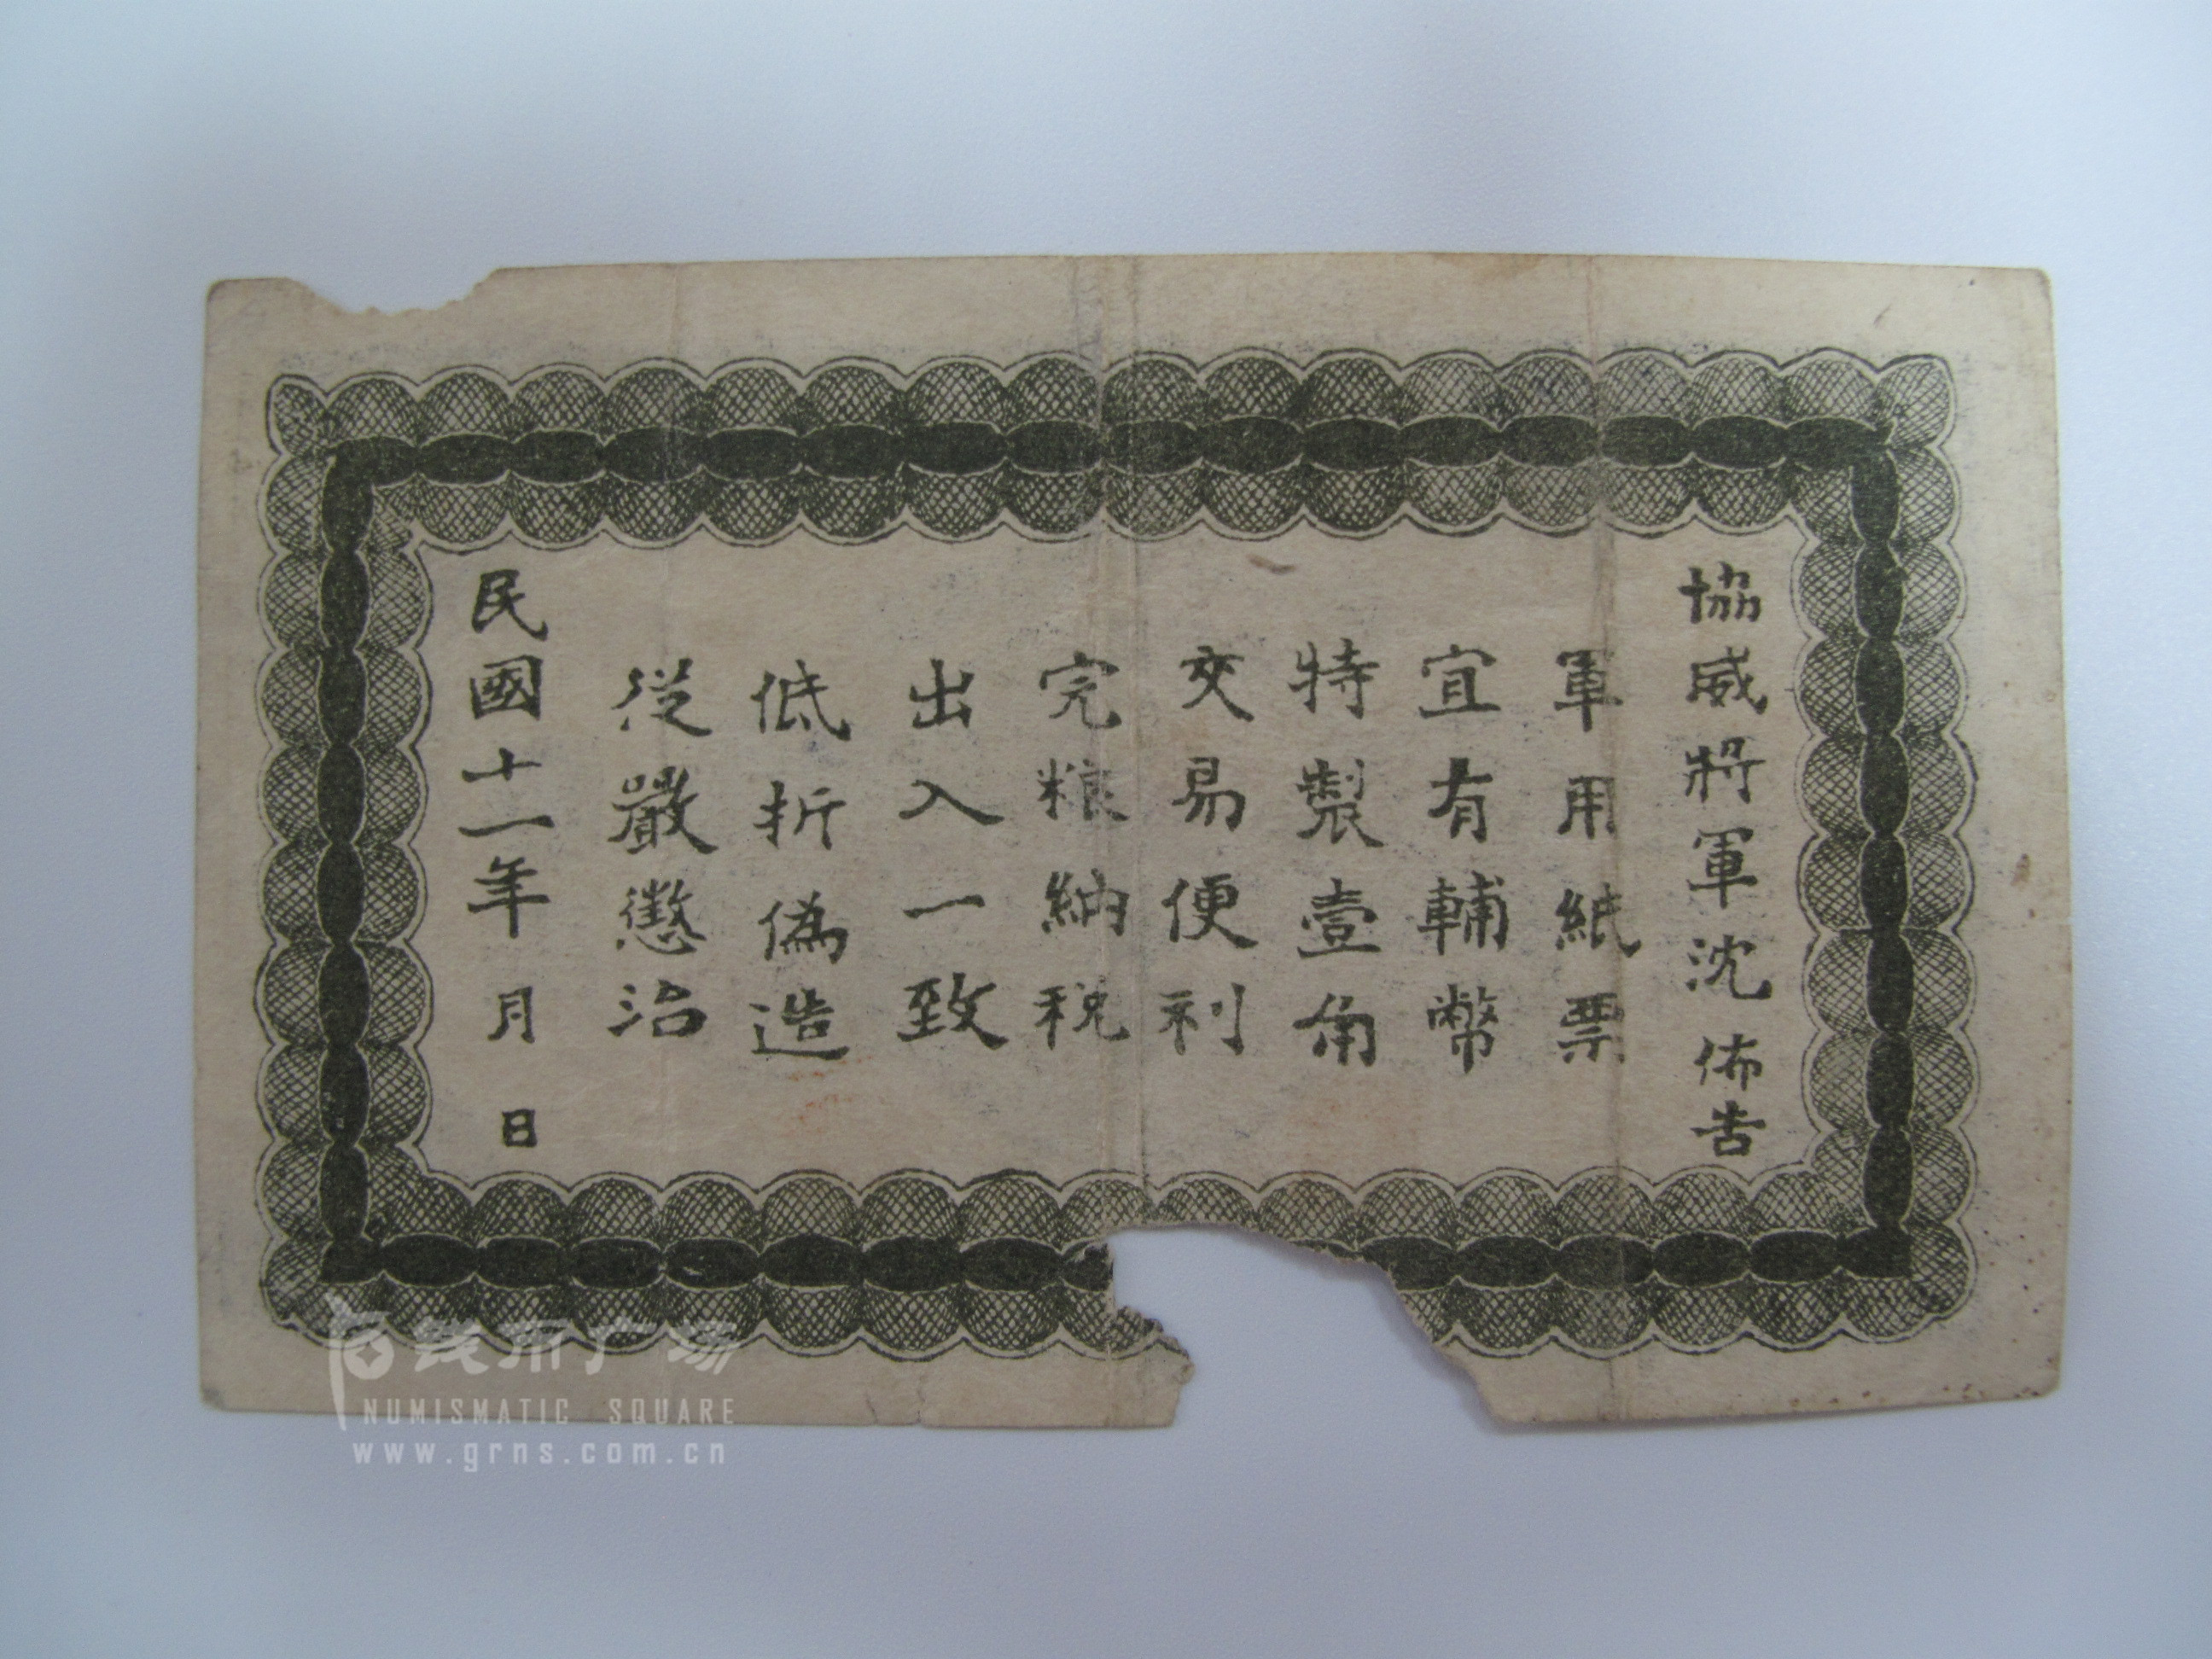 協威將軍沈佈告
軍用紙票
宜有輔幣
特製壹角
交易便利
完粮納税
出入一致
低折偽造
從嚴懲治
民國十一年 月 日
钱币广场
NUMISMATIC SQUARE
www.grns.com.cn